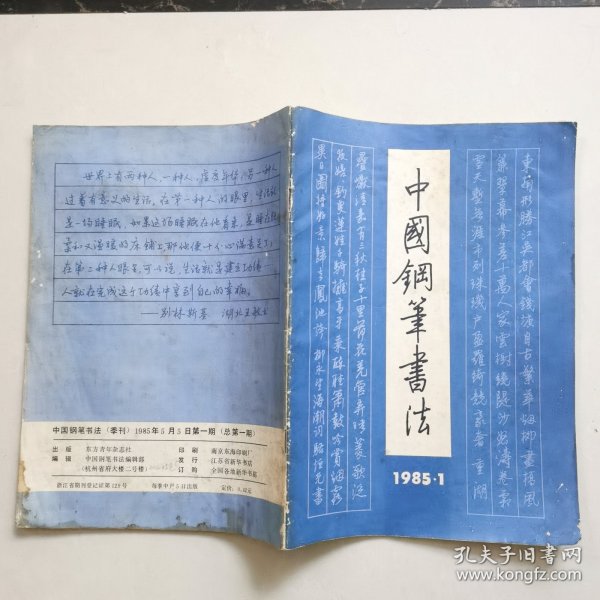 中國鋼筆書法
1985·1
東南形勝江吳都會錢塘自古繁華烟柳畫橋風
簾翠幕參差十萬人家雲樹繞隄沙怒濤卷霜
雪天塹無涯市列珠璣户盈羅綺競豪奢重湖
疊巘清嘉有三秋桂子十里荷花羌管弄晴菱歌泛
夜嬉嬉釣叟蓮娃千騎擁高牙乘醉聽簫鼓吟賞烟霞
異日圖將好景歸去鳳池誇 柳永望海潮詞
世界上有两种人,一种人,虚度年华;另一种人
过着有意义的生活。在第一种人的眼里,生活就
是一场睡眠,如果这场睡眠在他看来,是睡在
柔和又温暖的床铺上,那他便十分心满意足了;
在第二种人眼里,可以说,生活就是建立功绩
人就在完成这个功绩中享到自己的幸福。
——别林斯基 湖北王
中国钢笔书法(季刊)1985年5月5日第一期(总第一期)
出版 东方青年杂志社 印刷 南京东海印刷厂
编辑 中国钢笔书法编辑部 发行 江苏省新华书店
(杭州省府大楼二号楼) 订购 全国各地新华书店
浙江省期刊登记证第128号 每季中月5日出版 定价:0.42元
孔夫子旧书网
www.kongfz.com